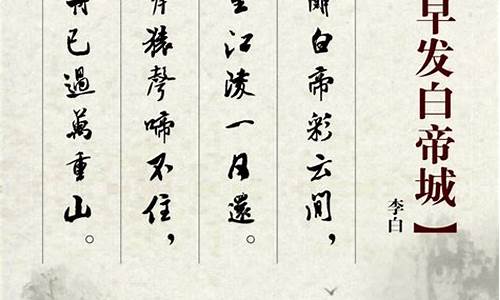 早发白帝城】
李白
白帝彩云间，
里江陵一日還。
岸猿聲啼不住，
舟已過萬重山。